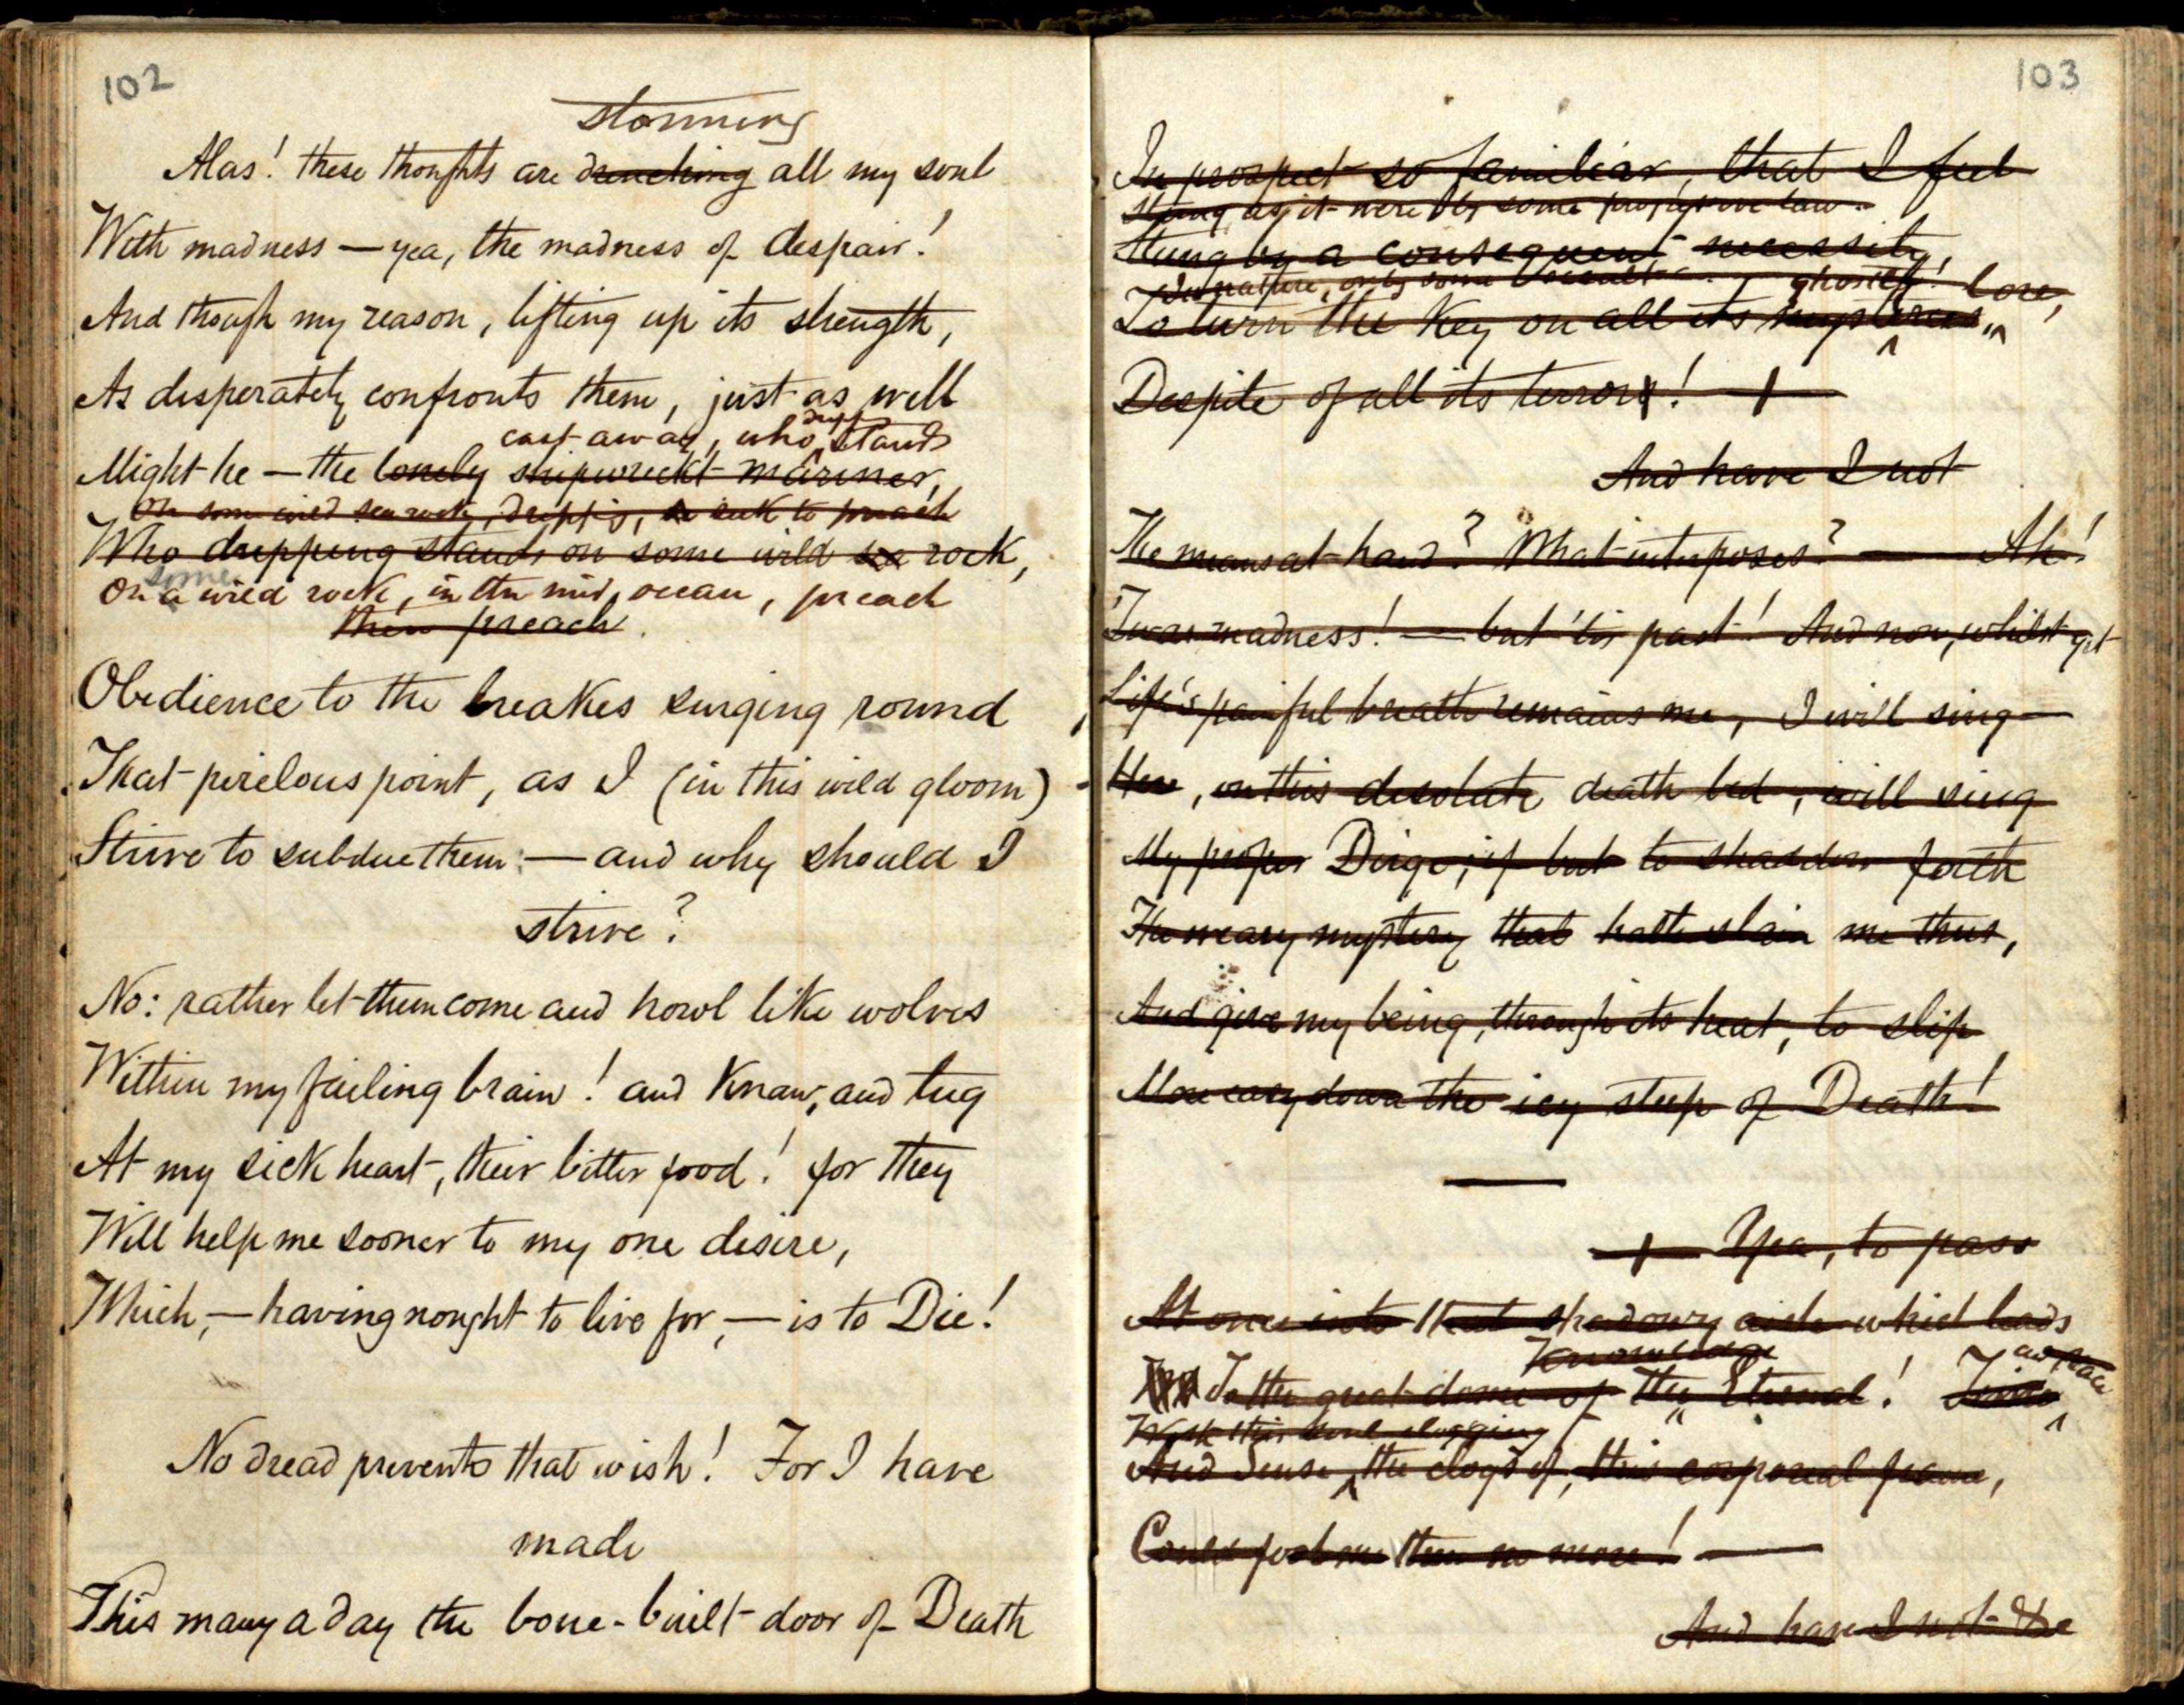 102
storming
Alas! these thoughts are drenching all my soul
With madness — yea, the madness of despair!
And though my reason, lifting up its strength,
As desperately confronts them, just as well
cast-away, who, stands
Might he — the lonely shipwreckt mariner,
On some wild sea rock, dripping, to preach
Who dripping stands on some wild sea rock,
some
On a wild rock, in the mid ocean, preach
then preach.
Obedience to the breakes surging round
That perilous point, as I (in this wild gloom)
Strive to subdue them: — and why should I
strive?
No: rather let them come and howl like wolves
Within my failing brain! and Knaw, and tug
At my sick heart, their bitter food! for they
Will help me sooner to my one desire,
Which, — having nought to live for, — is to Die!
No dread prevents that wish! For I have
made
This many a day the bone-built door of Death
103
In prospect so familiar, that I feel
Stung as it were by some law
Stung by a consequent necessity,
or by some ghostly! lore,
To turn the Key on all its mysteries,
Despite of all its terrors! +
And have I not
The means at hand? What interposes? — Ah!
'Twas madness! — but 'tis past! And now, whilst yet
Life's painful breath remains me, I will sing —
Here, on this desolate death bed, will sing
My proper Dirge, if but to shaddow forth
The weary mystery that hath slain me thus,
And give my being, through its heat, to slip
More easy down the icy steep of Death!
+ Yea, to pass
At once into that shadowy aisle which leads
Knowledge
To the great dome of the Eternal! Time
With this soul clogging
And Sense, the clogs of, this corporeal frame,
Could fool me then no more! —
And have I not the